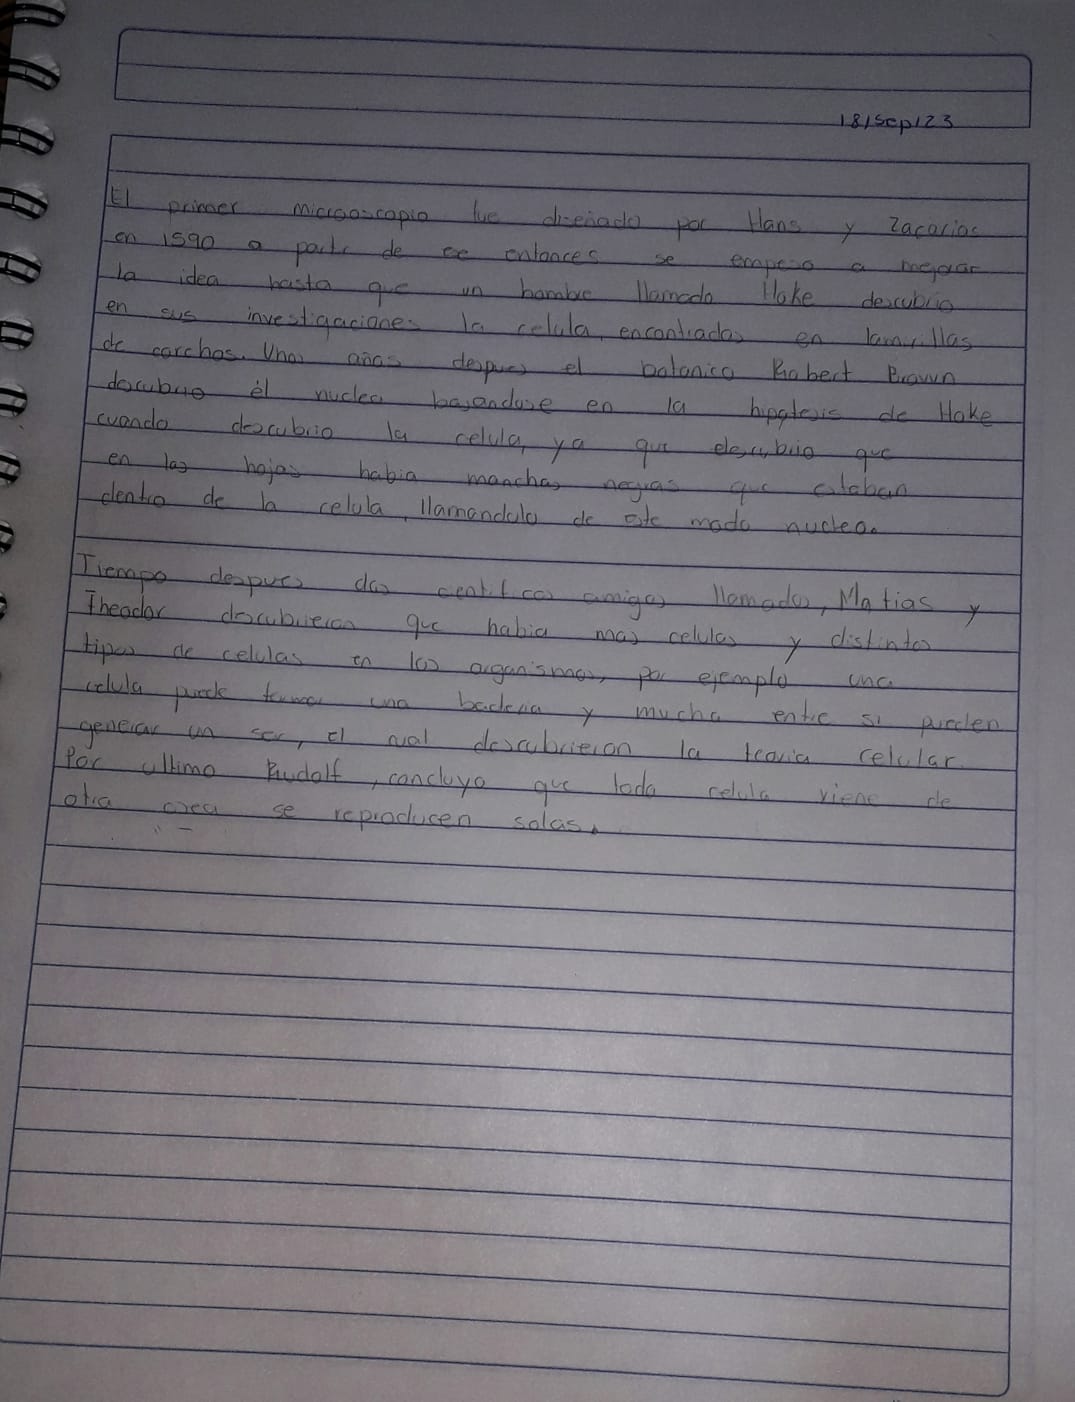 18/sep/23
El primer microoscopio fue diseñado por Hans y Zacarias
en 1590 a partir de ese entonces se empeso a mejorar
la idea hasta que un hombre llamado Hoke descubrio
en sus investigaciones la celula, encontradas en lamillas
de corchos. Unos años despues el botanico Robert Brown
descubrio él nucleo basandose en la hipotesis de Hoke
cuando descubrio la celula, ya que descubrio que
en las hojas habia manchas negras que estaban
dentro de la celula, llamandolo de este modo nucleo.
Tiempo despues dos cientificos amigos llamados, Matias y
Theodor descubrieron que habia mas celulas y distintos
tipos de celulas en los organismos, por ejemplo una
celula puede formar una bacteria y mucha entre si pueden
generar un ser, El cual descubrieron la teoria celular.
Por ultimo Rudolf, concluyo que toda celula viene de
otra osea se reproducen solas.